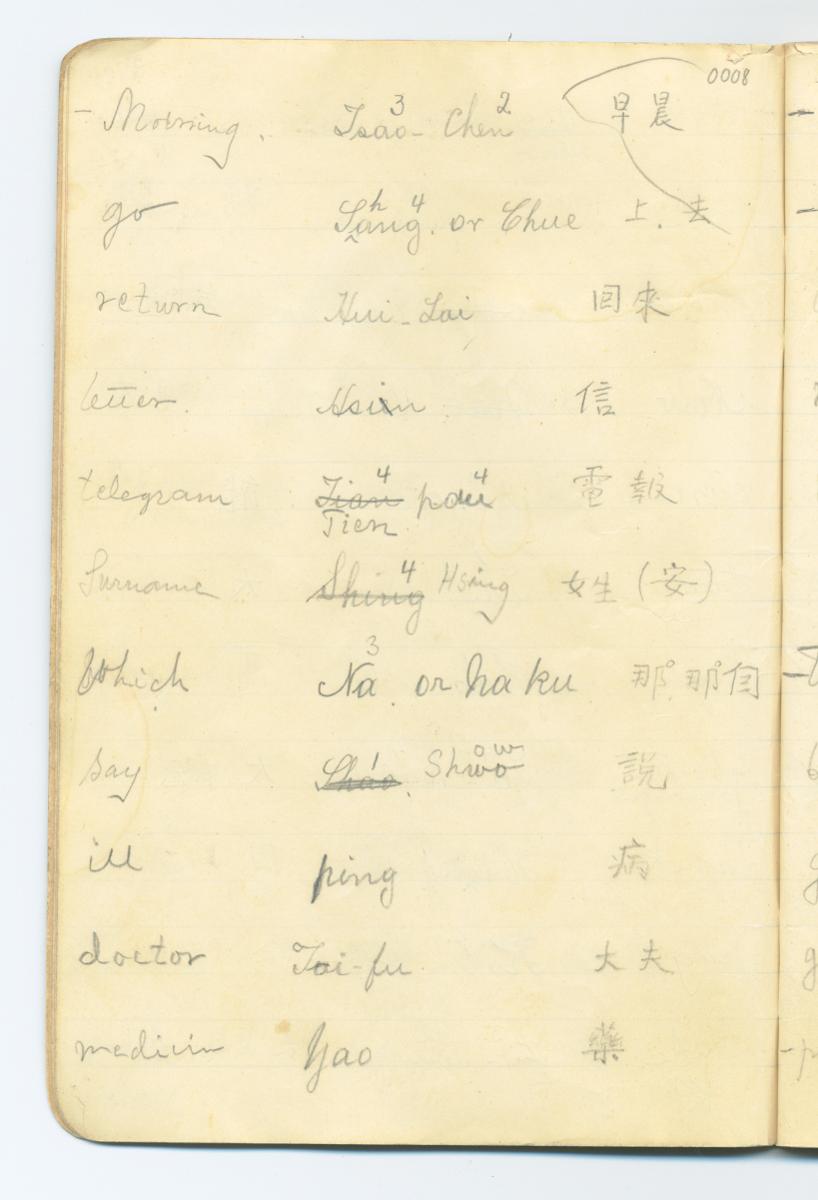 0008
- Morning. Tsao³- Chen² 早晨
go Shang⁴. or Chue 上. 去
return Hui-Lai 回來
letter. Hsin 信
telegram Tian⁴ pau⁴ 電報
Tien
Surname Shing⁴ Hsing 姓 (安)
Which Na³. or na ku 那, 那個
say Sháo. Show 說
ill ping 病
doctor Tai-fu 大夫
medicin Yao 藥